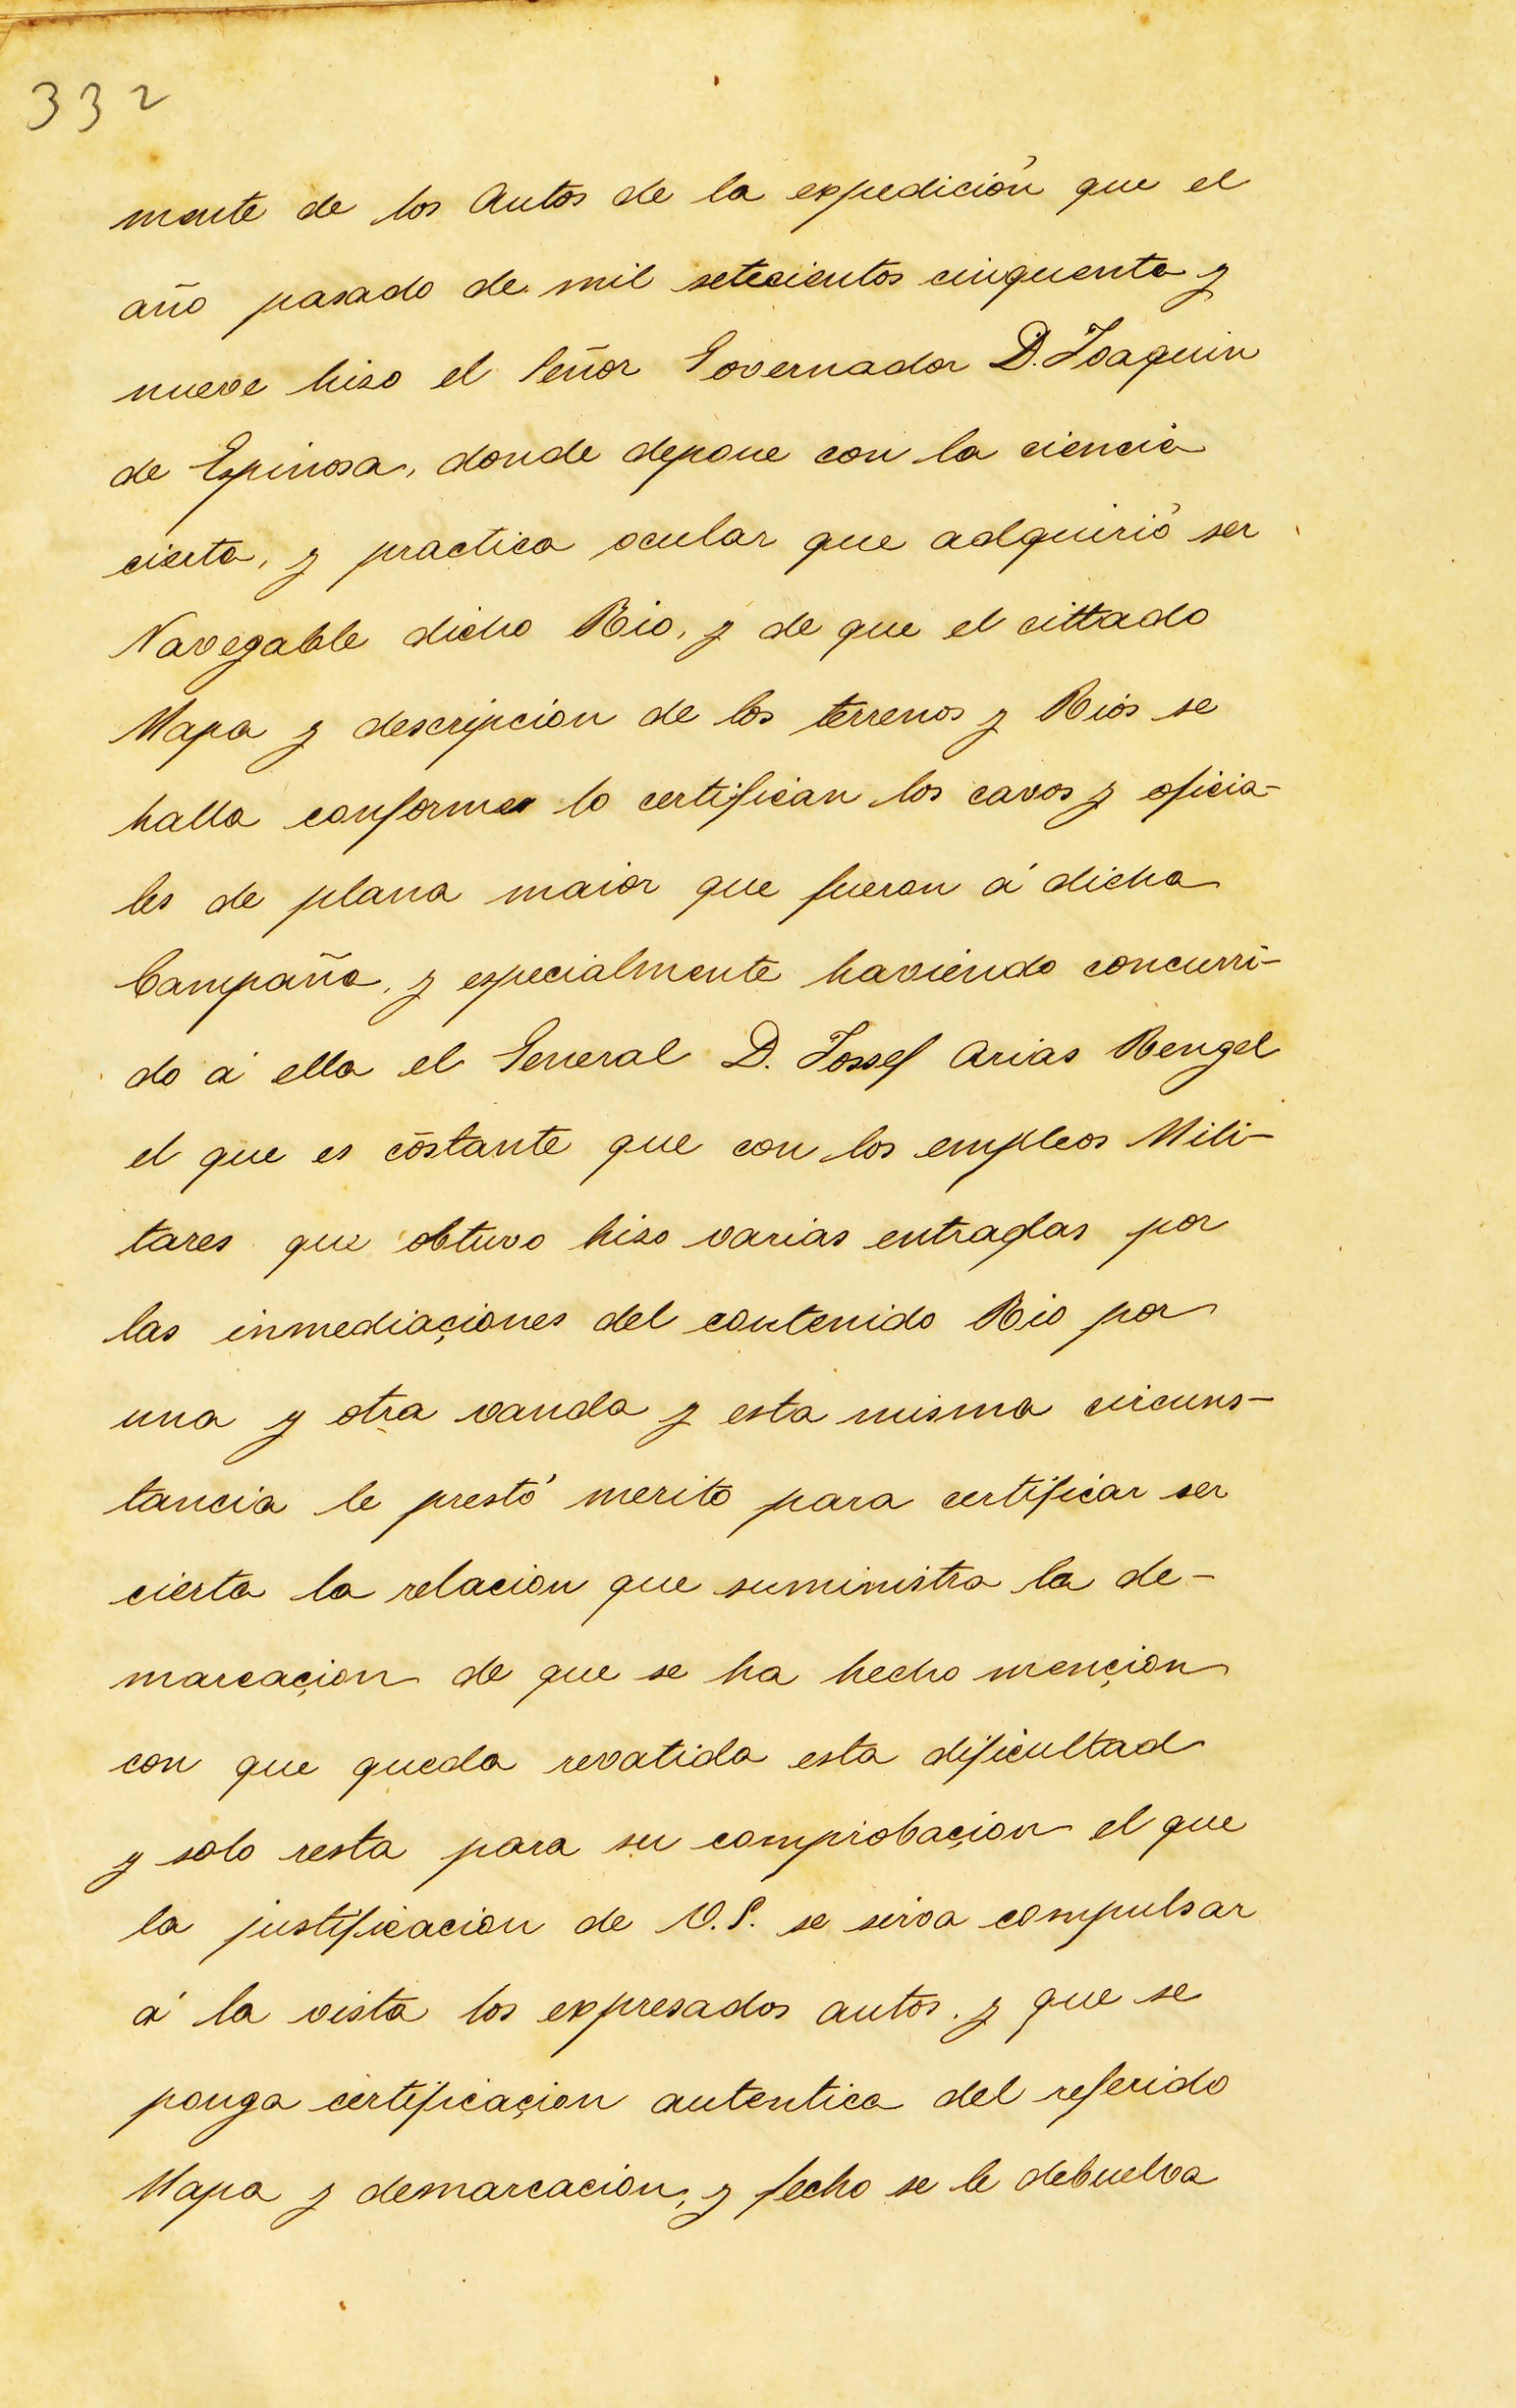 332
mente de los Autos de la expedición que el
año pasado de mil setecientos cinquenta y
nueve hiso el Señor Governador D. Joaquin
de Espinosa, donde depone con la ciencia
cierta, y practica ocular que adquirió ser
Navegable dicho Rio, y de que el cittado
Mapa y descripcion de los terrenos y Rios se
halla conforme lo certifican los cavos y oficia-
les de plana maior que fueron á dicha
Campaña, y especialmente haviendo concurri-
do á ella el General D. Jossef Arias Rengel
el que es cōstante que con los empleos Mili-
tares que obtuvo hiso varias entradas por
las inmediaçiones del contenido Rio por
una y otra vanda y esta misma circuns-
tancia le prestó merito para certificar ser
cierta la relacion que suministra la de-
marcaçion de que se ha hecho mençion
con que queda revatida esta dificultad
y solo resta para su comprobaçion el que
la justificacion de V.S. se sirva compulsar
á la vista los expresados autos. y que se
ponga certificaçion autentica del referido
Mapa y demarcacion, y fecho se le debuelva